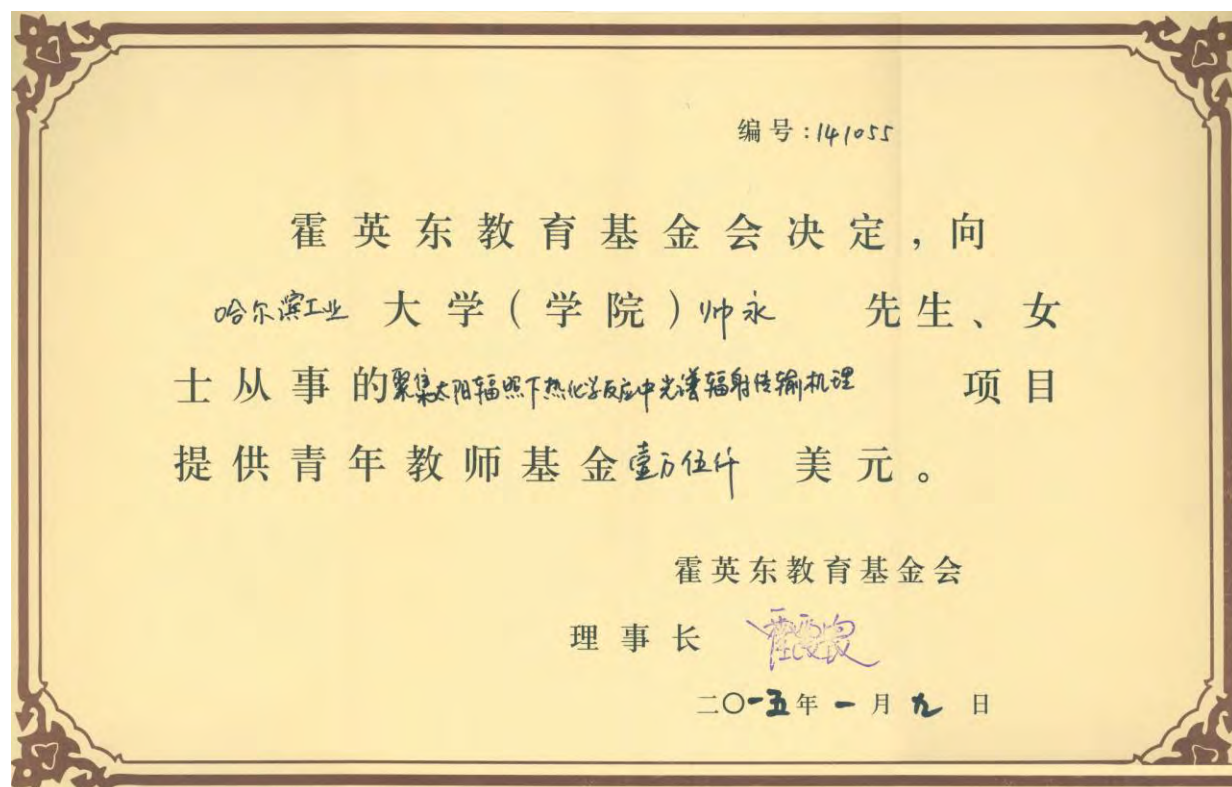 编号:141055
霍英东教育基金会决定,向
哈尔滨工业 大学(学院)帅永 先生、女
士从事的聚集太阳辐照下热化学反应中光谱辐射传输机理 项目
提供青年教师基金壹万伍仟 美元。
霍英东教育基金会
理事长 霍震寰
二〇一五年一月九日